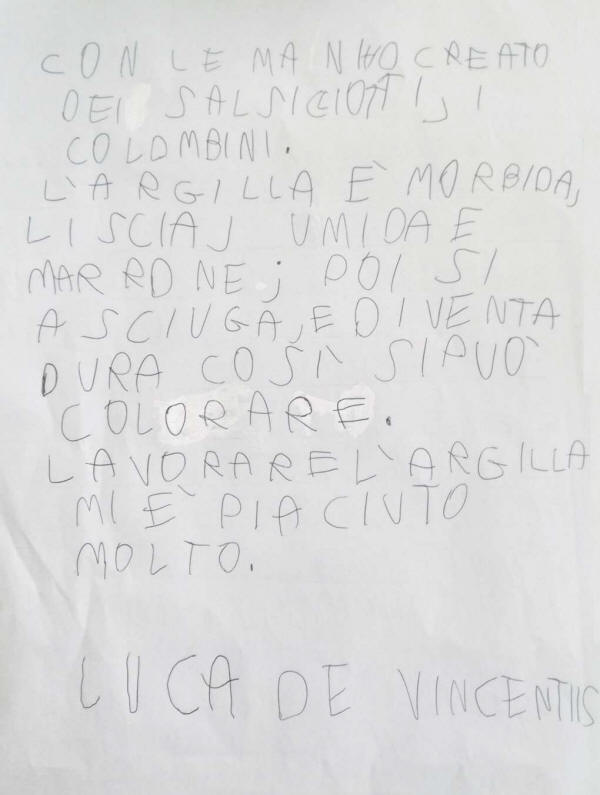 CON LE MANI HO CREATO
DEI SALSICIOTTI, I
COLOMBINI.
L'ARGILLA È MORBIDA,
LISCIA, UMIDA E
MARRONE; POI SI
ASCIUGA, E DIVENTA
DURA COSÌ SI PUÒ
COLORARE.
LAVORARE L'ARGILLA
MI È PIACIUTO
MOLTO.
LUCA DE VINCENTIIS